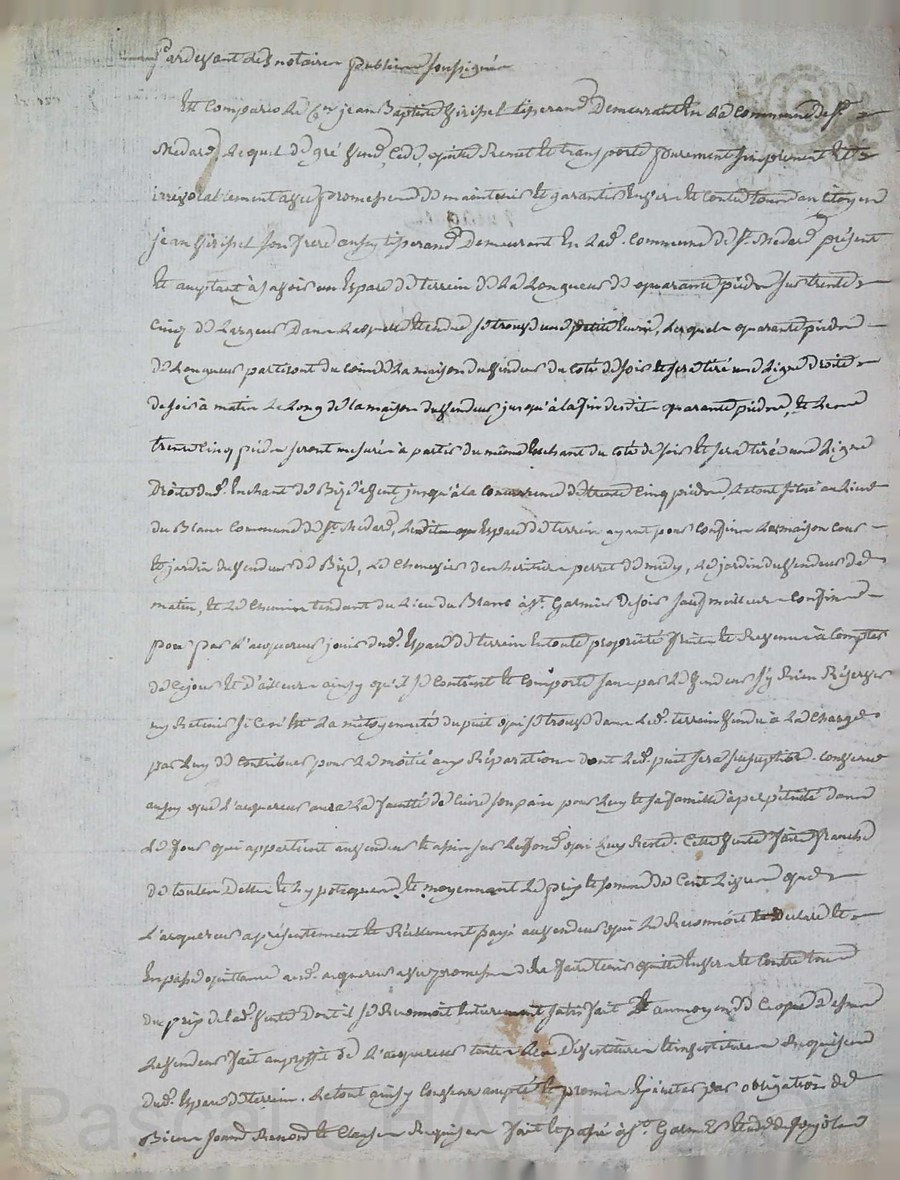 Pardevant les notaires publics soussignés
Est comparu le Cn jean Baptiste tisserand Demeurant En la commune de St
Medard, lequel de gré vend, cede, quitte Remet et transporte purement simplement et
irrevocablement avec promesse de maintenir et garantir Envers et Contre tous au Citoyen
jean son frere aussy tisserand Demeurant En lade. Commune de St. Medard présent
Et acceptant à savoir un Espace de terrein de la Longueur de quarante pieds sur trente
cinq de Largeur Dans laquelle Etendue se trouve une petite , Lesquels quarante pieds
de Longueur partiront du coin de la maison du vendeur du coté de soir et sera tiré une Ligne droite
de soir à matin Le Long de la maison du vendeur jusqu'à la fin desdits quarante pieds, et Les
trente cinq pieds seront mesurés à partir du même Enchant du coté de soir et sera tirée une Ligne
Droite dud. Enchant de Bize à vent jusqu'à la concurrence de trente cinq pieds, Le tout situé au Lieu
du Blanc Commune de St. Medard, Ledit Espace de terrein ayant pour confins Les maison cour
Et jardin du vendeur de Bize, Le Chenevier des heritiers perret de midy, Le jardin du vendeur de
matin, et Le Chemin tendant du Lieu du Blanc à St. Galmier de soir sauf meilleurs confins
pour par L'acquereur jouir dud. Espace de terrein En toute propriété fruits et Revenus à Compter
de ce jour Et d'ailleurs ainsy qu'il se Contient et Comporte sans par Le vendeur s'y Rien Réserver
ny Retenir si ce n'Est La mitoyenneté du puit qui se trouve dans Led. terrein vendu à La Charge
par Luy de Contribuer pour La moitié aux Réparations dont Led. puit sera susceptible. Convenu
aussy que L'acquereur aura La faculté de Cuire son pain pour Luy et sa famille à perpétuité dans
Le four qui appartient au vendeur et assis sur Le fond qui Luy Reste. Cette vente faite franche
de toutes Dettes et hypoteques, Et moyennant Le prix et somme de Cent Livres que
L'acquereur a présentement et Réellement payé au vendeur qui Le Reconnoit Et Déclare Et
En passe quittance aud. acquereur avec promesse de La faire tenir quitte Envers et Contre tous
du prix de lad. vente Dont il se Reconnoit Entierement satisfait Et au moyen de ce que Dessus
Le vendeur fait au proffit de L'acquereur toutes Les Devestitures et investitures Requises
dud. Espace de terrein. Le tout ainsy Convenu accepté Et promis Executer par obligation de
Biens Renonce et Clauses Requises fait et passé à St. Galmier Etude de